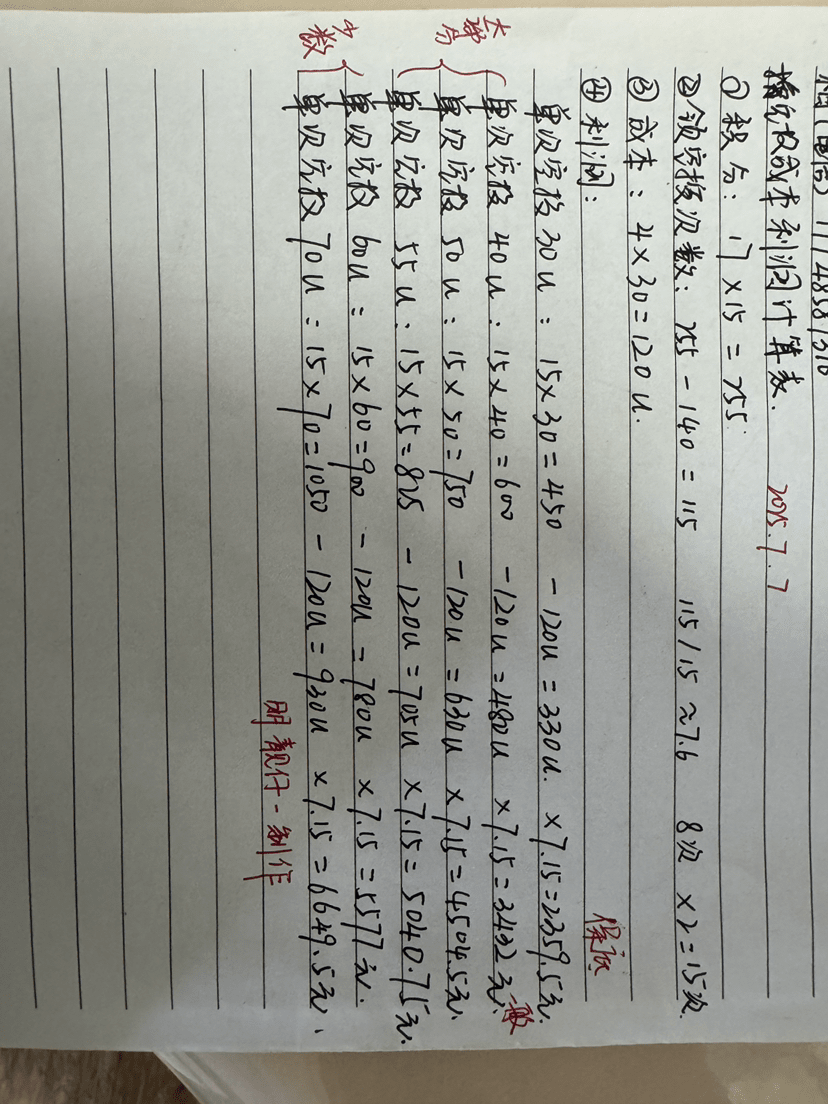 撸空投成本利润计算表. 2025.7.7
① 积分: 17×15=255.
② 领空投次数: 255-140=115 115/15≈7.6 8次×2=15次.
③ 成本: 4×30=120u.
④ 利润: 保底
单次空投30u: 15×30=450 -120u=330u. ×7.15=2359.5元.
大部分
单次空投40u: 15×40=600 -120u=480u ×7.15=3432元. 一般
单次空投50u: 15×50=750 -120u=630u ×7.15=4504.5元.
单次空投55u: 15×55=825 -120u=705u ×7.15=5040.75元.
少数
单次空投60u: 15×60=900 -120u=780u ×7.15=5577元.
单次空投70u: 15×70=1050 -120u=930u ×7.15=6649.5元.
明靓仔-制作